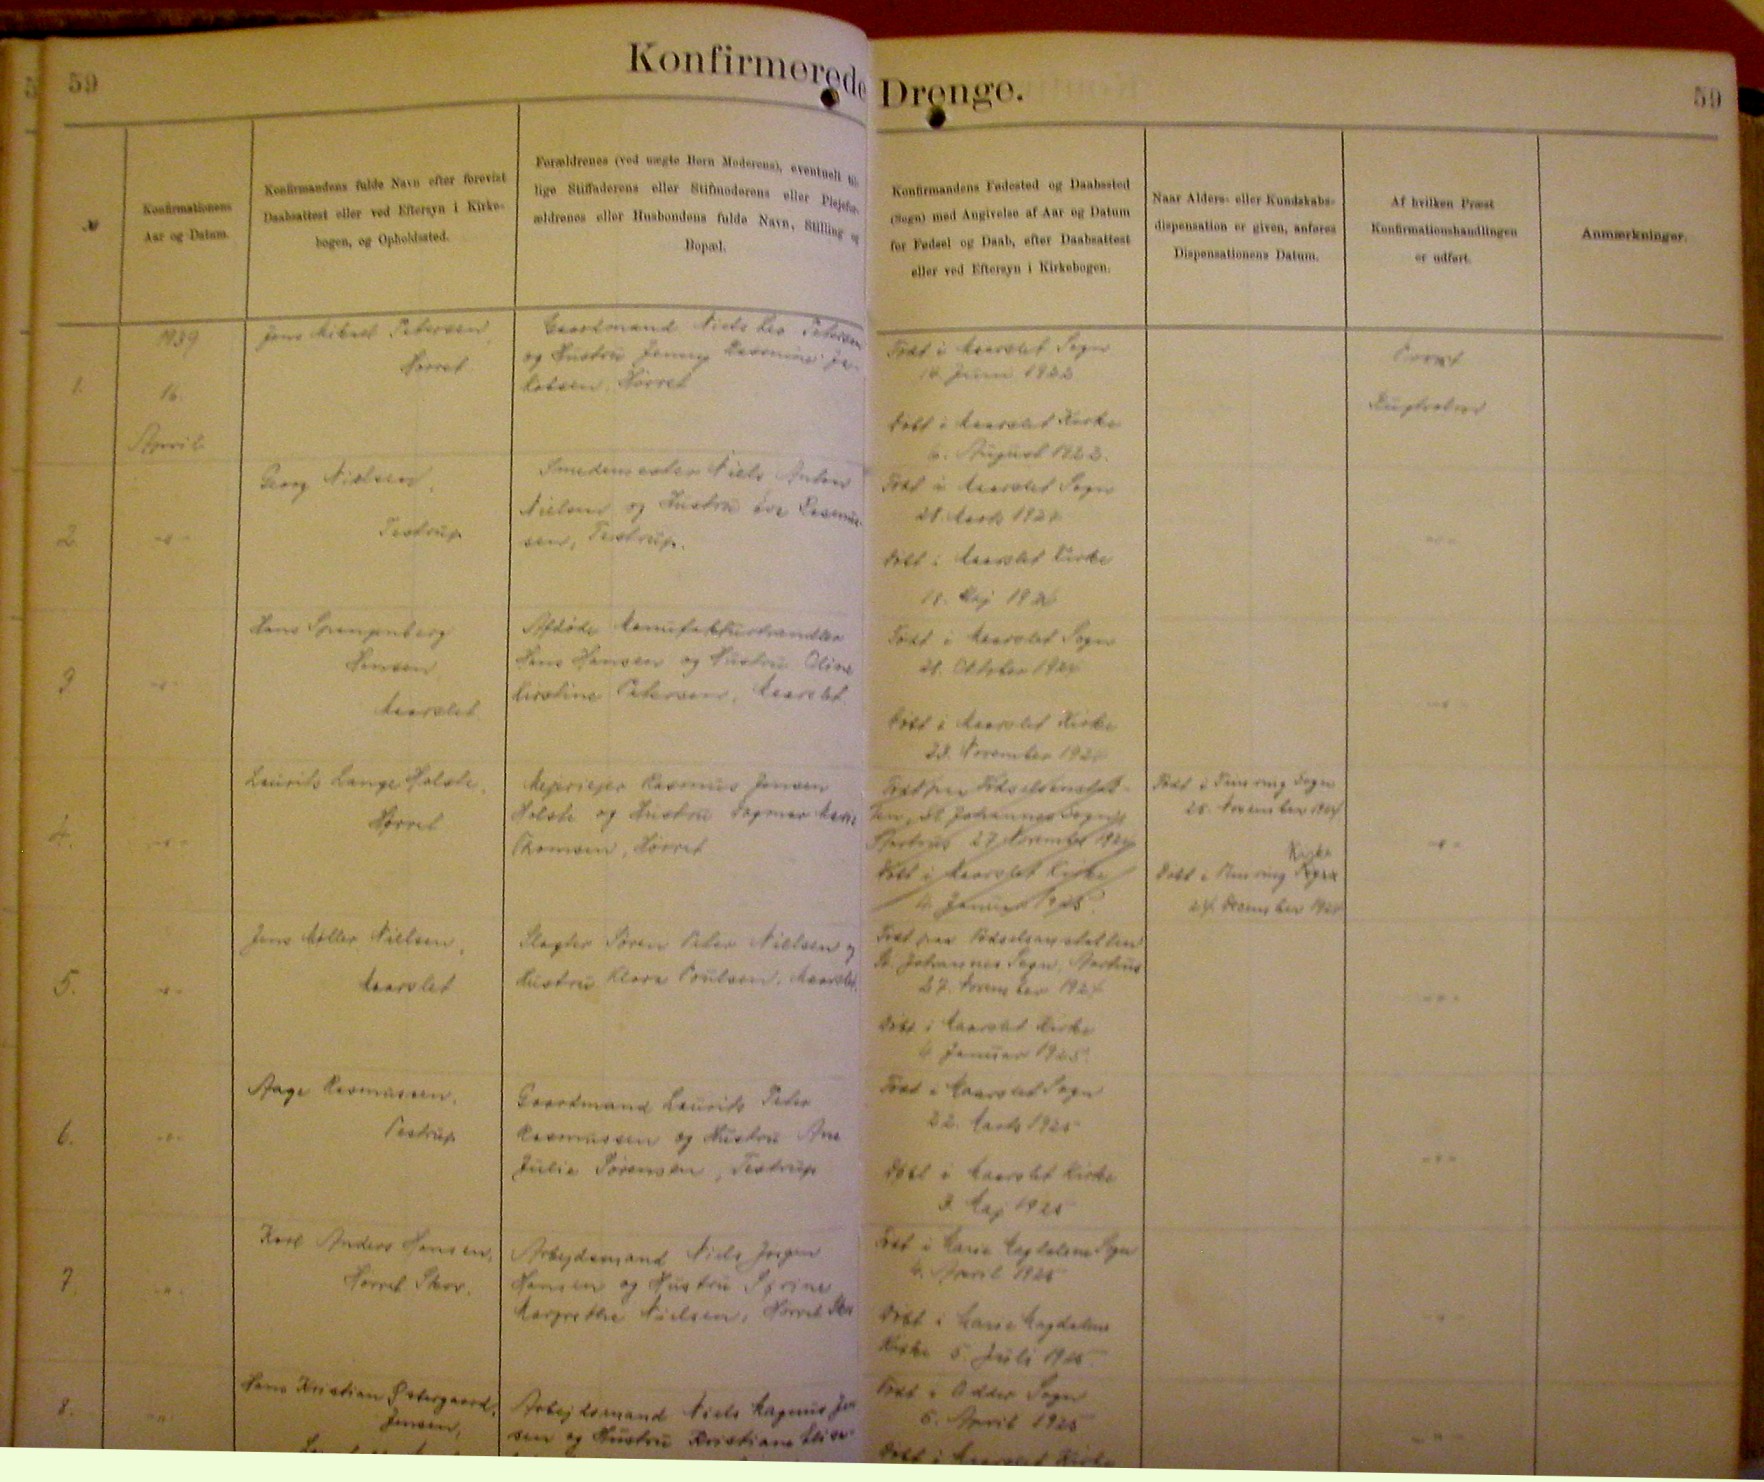 59
Konfirmerede
Drenge.
59
№
Konfirmationens
Aar og Datum.
Konfirmandens fulde Navn efter forevist
Daabsattest eller ved Eftersyn i Kirke-
bogen, og Opholdssted.
Forældrenes (ved uægte Børn Moderens), eventuelt til-
lige Stiffaderens eller Stifmoderens eller Plejefor-
ældrenes eller Husbondens fulde Navn, Stilling og
Bopæl.
Konfirmandens Fødested og Daabssted
(Sogn) med Angivelse af Aar og Datum
for Fødsel og Daab, efter Daabsattest
eller ved Eftersyn i Kirkebogen.
Naar Alders- eller Kundskabs-
dispensation er given, anføres
Dispensationens Datum.
Af hvilken Præst
Konfirmationshandlingen
er udført.
Anmærkninger.
1.
1939
16.
April
Jens Mikael Petersen,
Hørret
Gaardmand Niels Petersen
og Hustru Jenny Rasmine Ja-
kobsen, Hørret
Født i Maarslet Sogn
Juni 1922
Døbt i Maarslet Kirke
6. August 1922.
Provst
2.
Georg Nielsen,
Testrup
Smedemester Niels Anton
Nielsen og Hustru Rasmus-
sen, Testrup.
Født i Maarslet Sogn
Marts 1924
Døbt i Maarslet Kirke
18. Maj 1924
3.
Hans Spangenberg
Hansen
Maarslet
Afdøde Manufakturhandler
Hans Hansen og Hustru Oline
Kirstine Petersen, Maarslet
Født i Maarslet Sogn
Oktober 1924
Døbt i Maarslet Kirke
23. November 1924
4.
Laurits Lange Holst,
Hørret
Mejeriejer Rasmus Jensen
Holst og Hustru Dagmar Marie
Thomsen, Hørret
Født paa Fødselsanstal-
ten, St. Johannes Sogn,
Aarhus 27 November 1924
Døbt i Maarslet Kirke
4. Januar 1925.
Født i Sogn
25. November 1924
Kirke
Døbt i
24. December 1924
5.
Jens Møller Nielsen,
Maarslet
Slagter Søren Peter Nielsen og
Hustru Klara Poulsen, Maarslet.
Født paa Fødselsanstalten
St. Johannes Sogn, Aarhus
27. November 1924
Døbt i Maarslet Kirke
4 Januar 1925.
6.
Aage Rasmussen,
Testrup
Gaardmand Laurits Peter
Rasmussen og Hustru Ane
Julie Sørensen, Testrup
Født i Maarslet Sogn
22. Marts 1925
Døbt i Maarslet Kirke
3. Maj 1925
7.
Karl Anders Hansen,
Hørret Skov.
Arbejdsmand Niels Jørgen
Hansen og Hustru
Margrethe Nielsen, Hørret Skov
Født i Marie Magdalene Sogn
April 1925
Døbt i Marie Magdalene
Kirke 5. Juli 1925.
8.
Hans Kristian Østergaard
Jensen,
Arbejdsmand Niels Magnus Jen-
sen og Hustru Kristiane Elise
Født i Odder Sogn
5. April 1925
Døbt i Maarslet Kirke